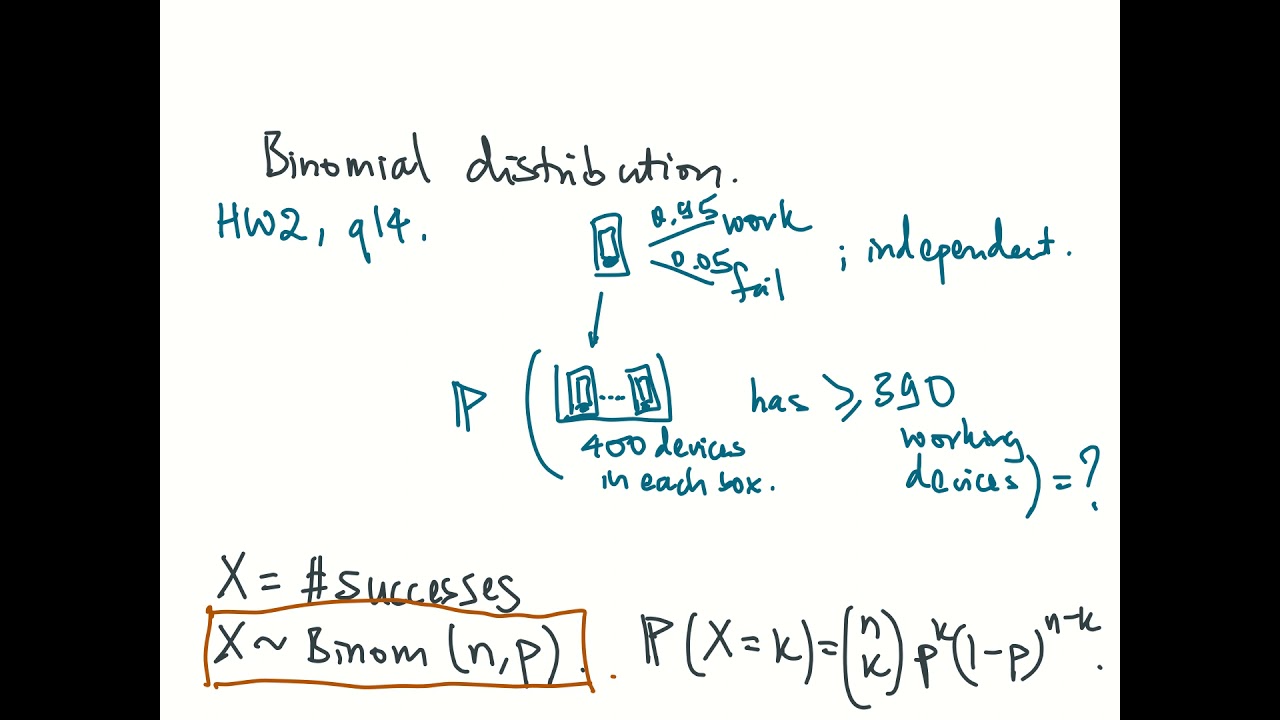 Binomial distribution.
HW2, q14.
0.95 work
0.05 fail
; independent.
ℙ ( .... has ⩾ 390
400 devices
in each box.
working
devices) = ?
X = #successes
X ~ Binom (n,p).
ℙ(X=k)=(n k) p^k (1-p)^{n-k}.